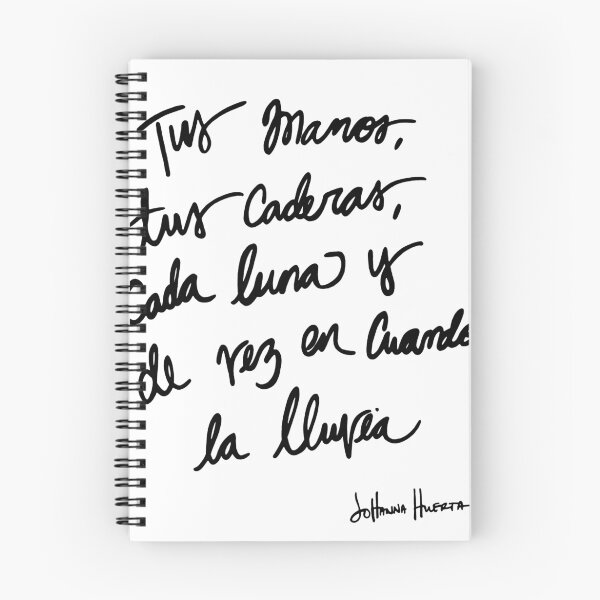 Tus manos,
tus caderas,
cada luna y
de vez en cuando
la lluvia
JoHanna Huerta